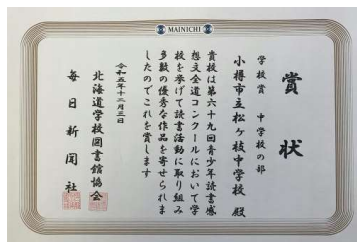 MAINICHI
賞状
学校賞 中学校の部
小樽市立松ヶ枝中学校 殿
貴校は第六十九回青少年読書感
想文全道コンクールにおいて学
校を挙げて読書活動に取り組み
多数の優秀な作品を寄せられま
したのでこれを賞します
令和五年十二月三日
北海道学校図書館協会
毎日新聞社